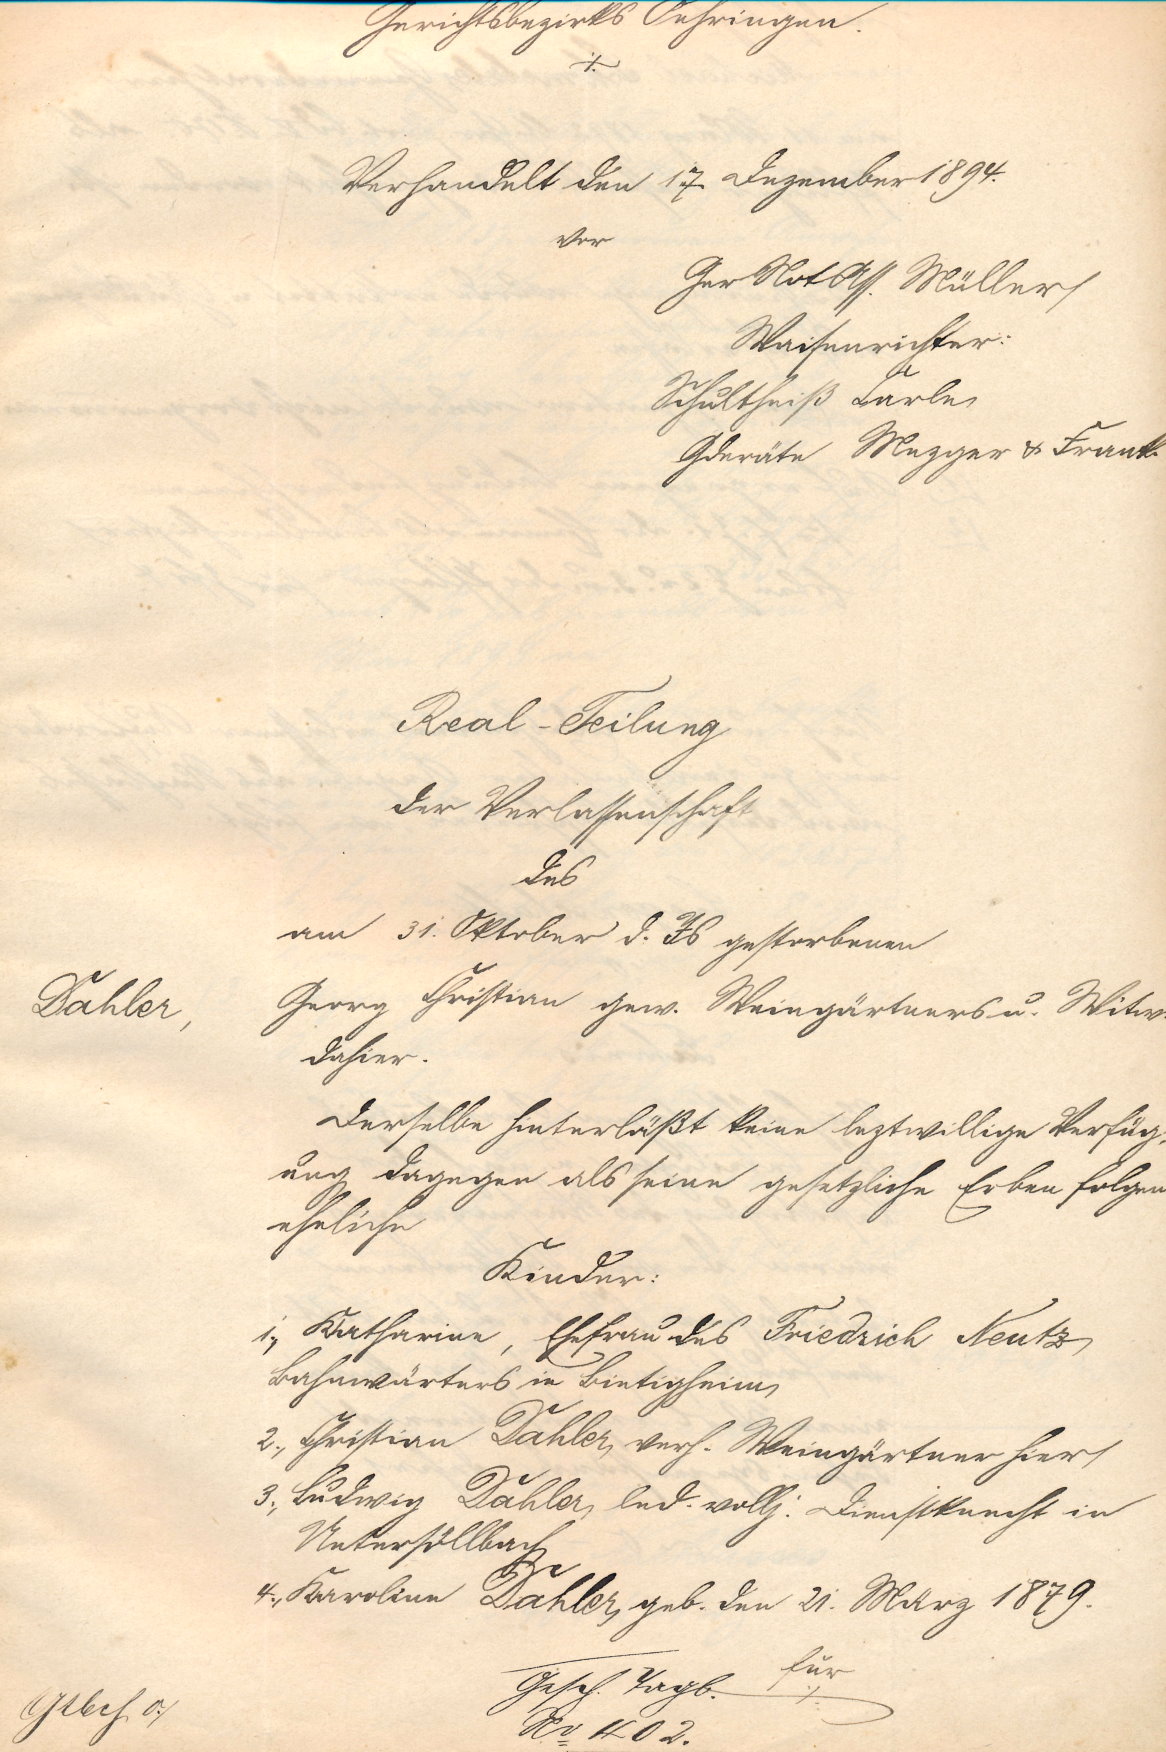 Gerichtsbezirks Oehringen.
Verhandelt den 17. Dezember 1894.
vor
Ger Not Ass. Müller,
Waisenrichter:
Schultheiß Carle,
Gderäte Mezger & Frank.
Real-Teilung
der Verlassenschaft
des
am 31. Oktober d. Js gestorbenen
Dahler,
Georg Christian gew. Weingärtners u. Witw.
dahier.
Derselbe hinterläßt keine leztwillige Verfüg-
ung dagegen als seine gesetzliche Erben folgen
eheliche
Kinder:
1., Katharine, Ehefrau des Friedrich Neutz,
Bahnwärters in Bietigheim,
2., Christian Dahler, verh. Weingärtner hier,
3., Ludwig Dahler, led. vollj. Dienstknecht in
Untersöllbach
4., Karoline Dahler, geb. den 21. März 1879.
für
Gesch. Tagb.
No 402.